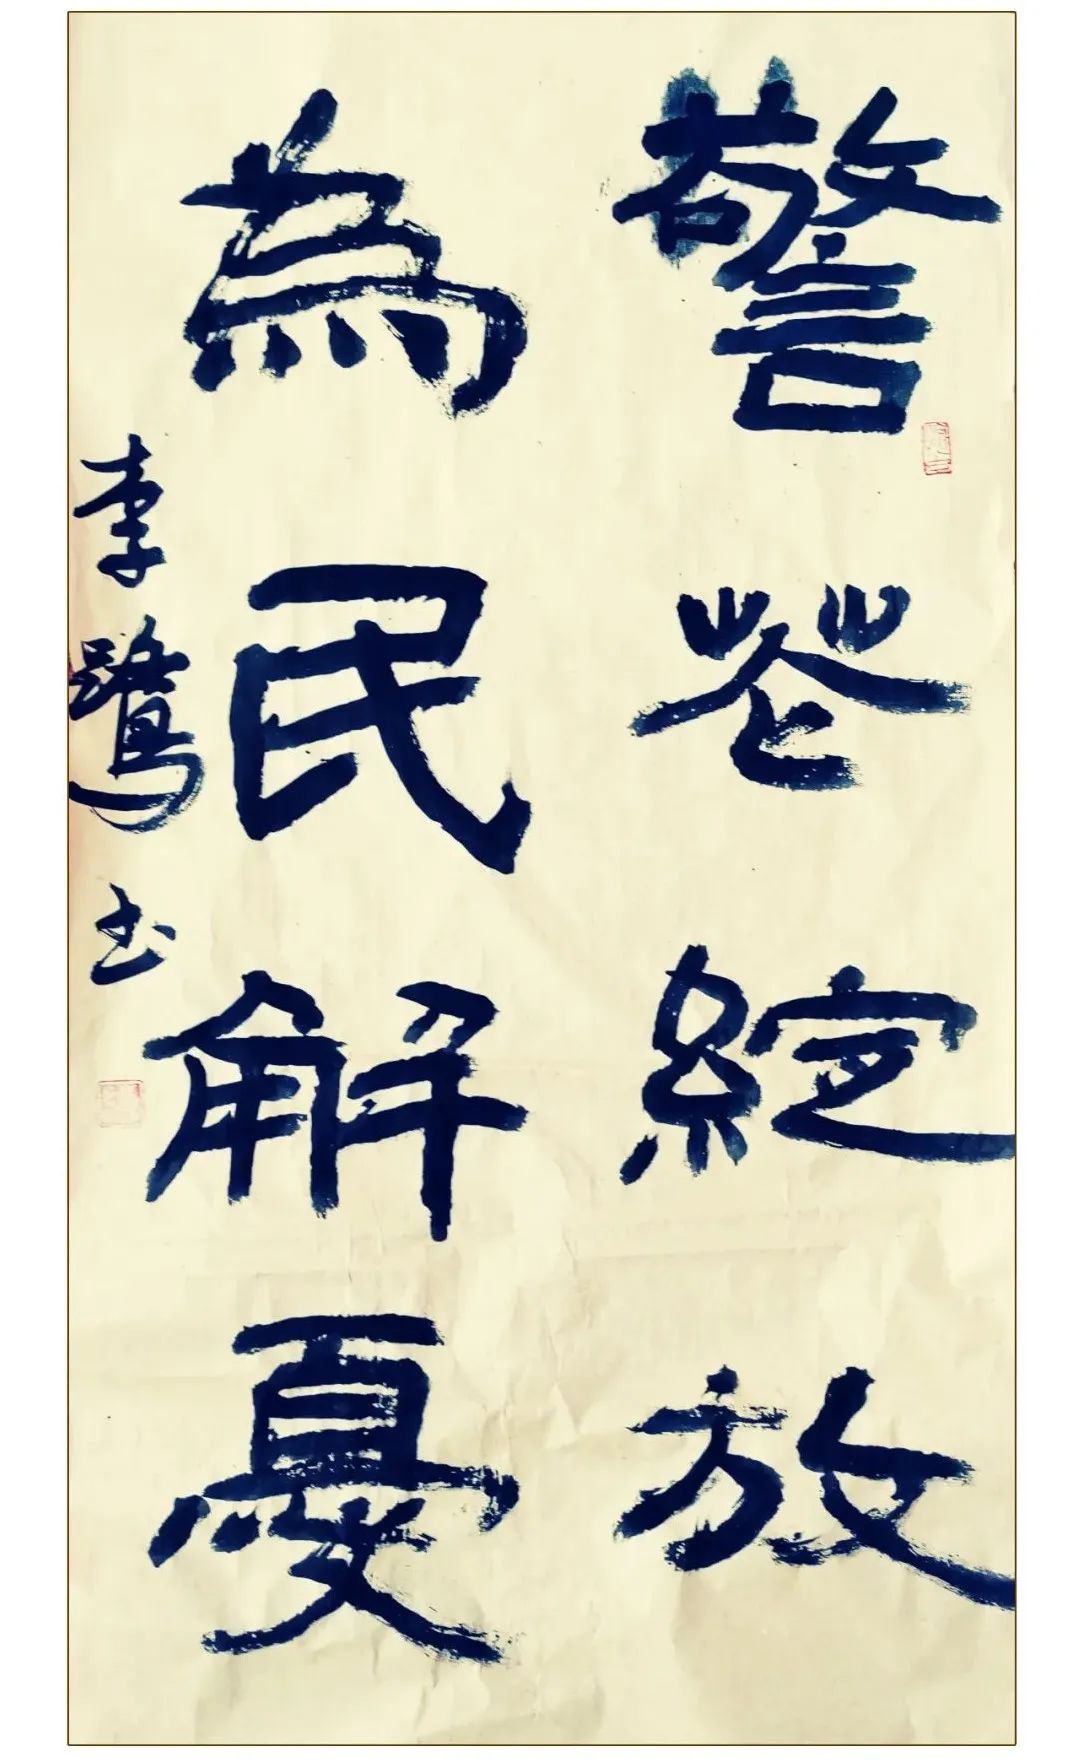 警花綻放
為民解憂
李鷺书